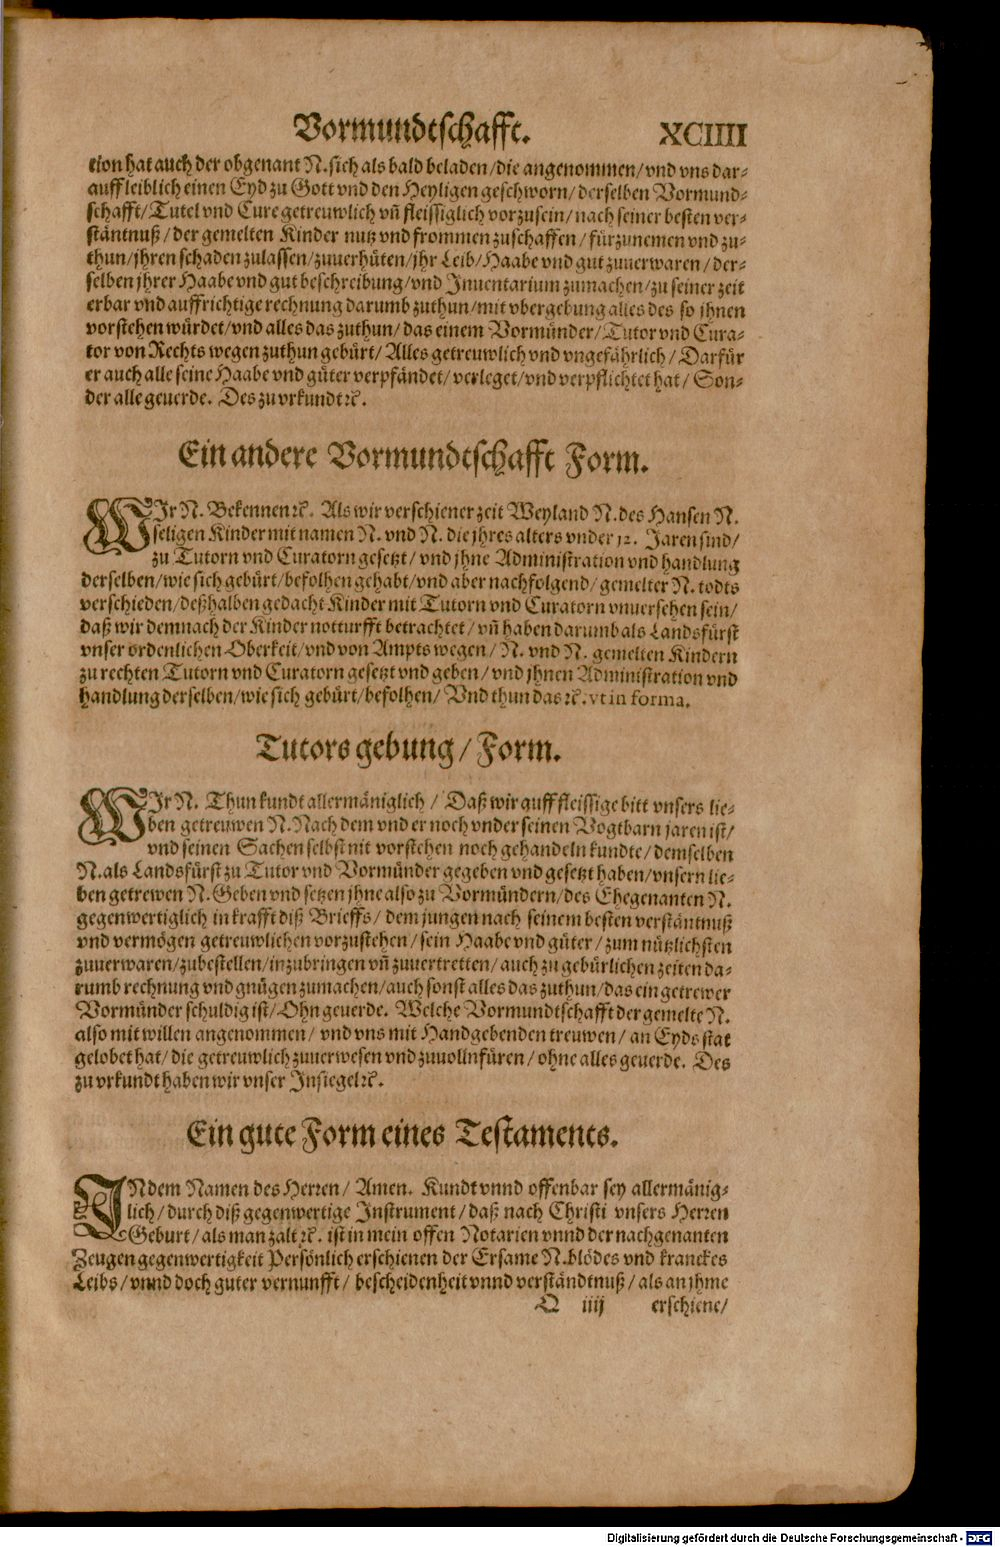 Vormundtschafft. XCIIII
tion hat auch der obgenant N. sich als bald beladen / die angenommen / vnd vns dar-
auff leiblich einen Eyd zu Gott vnd den Heyligen geschworn / derselben Vormund-
schafft / Tutel vnd Cure getreuwlich vn̄ fleissiglich vorzusein / nach seiner besten ver-
stäntnuß / der gemelten Kinder nutz vnd frommen zuschaffen / fürzunemen vnd zu-
thun / jhren schaden zulassen / zuuerhüten / jhr Leib / Haabe vnd gut zuuerwaren / der-
selben jhrer Haabe vnd gut beschreibung / vnd Jnuentarium zumachen / zu seiner zeit
erbar vnd auffrichtige rechnung darumb zuthun / mit vbergebung alles des so jhnen
vorstehen würdet / vnd alles das zuthun / das einem Vormünder / Tutor vnd Cura-
tor von Rechts wegen zuthun gebürt / Alles getreuwlich vnd vngefährlich / Darfür
er auch alle seine Haabe vnd güter verpfändet / verleget / vnd verpflichtet hat / Son-
der alle geuerde. Des zu vrkundt ꝛc.
Ein andere Vormundtschafft Form.
WJr N. Bekennen ꝛc. Als wir verschiener zeit Weyland N. des Hansen N.
seligen Kinder mit namen N. vnd N. die jhres alters vnder 12. Jaren sind /
zu Tutorn vnd Curatorn gesetzt / vnd jhne Administration vnd handlung
derselben / wie sich gebürt / befolhen gehabt / vnd aber nachfolgend / gemelter N. todts
verschieden / deßhalben gedacht Kinder mit Tutorn vnd Curatorn vnuersehen sein /
daß wir demnach der Kinder notturfft betrachtet / vn̄ haben darumb als Landsfürst
vnser ordenlichen Oberkeit / vnd von Ampts wegen / N. vnd N. gemelten Kindern
zu rechten Tutorn vnd Curatorn gesetzt vnd geben / vnd jhnen Administration vnd
handlung derselben / wie sich gebürt / befolhen / Vnd thun das ꝛc. vt in forma.
Tutors gebung / Form.
WJr N. Thun kundt allermäniglich / Daß wir auff fleissige bitt vnsers lie-
ben getreuwen N. Nach dem vnd er noch vnder seinen Vogtbarn jaren ist /
vnd seinen Sachen selbst nit vorstehen noch gehandeln kundte / demselben
N. als Landsfürst zu Tutor vnd Vormünder gegeben vnd gesetzt haben / vnsern lie-
ben getrewen N. Geben vnd setzen jhne also zu Vormündern / des Ehegenanten N.
gegenwertiglich in krafft diß Brieffs / dem jungen nach seinem besten verstäntnuß
vnd vermögen getreuwlichen vorzustehen / sein Haabe vnd güter / zum nützlichsten
zuuerwaren / zubestellen / inzubringen vn̄ zuuertretten / auch zu gebürlichen zeiten da-
rumb rechnung vnd gnügen zumachen / auch sonst alles das zuthun / das ein getrewer
Vormünder schuldig ist / Ohn geuerde. Welche Vormundtschafft der gemelte N.
also mit willen angenommen / vnd vns mit Handgebenden treuwen / an Eyds stat
gelobet hat / die getreuwlich zuuerwesen vnd zuuollnfüren / ohne alles geuerde. Des
zu vrkundt haben wir vnser Jnsiegel ꝛc.
Ein gute Form eines Testaments.
JN dem Namen des Herren / Amen. Kundt vnnd offenbar sey allermänig-
lich / durch diß gegenwertige Jnstrument / daß nach Christi vnsers Herren
Geburt / als man zalt ꝛc. ist in mein offen Notarien vnnd der nachgenanten
Zeugen gegenwertigkeit Persönlich erschienen der Ersame N. blödes vnd kranckes
Leibs / vnnd doch guter vernunfft / bescheidenheit vnnd verständtnuß / als an jhme
Q iiij erschiene /
Digitalisierung gefördert durch die Deutsche Forschungsgemeinschaft - DFG